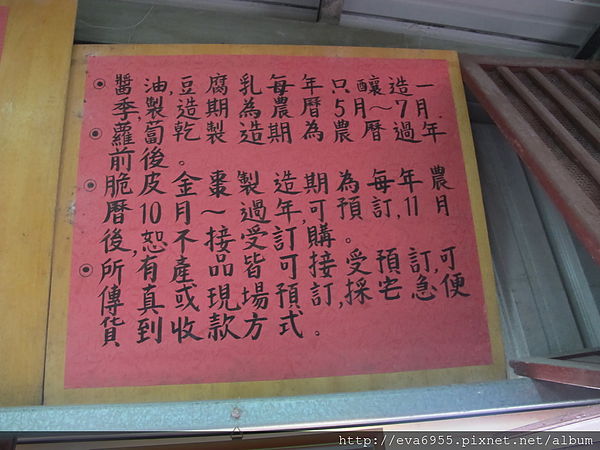 ◉醬油,豆腐乳每年只釀造一
季,製造期為農曆5月～7月.
◉蘿蔔乾製造期為農曆過年
前後。
◉脆皮金棗製造期為每年農
曆10月～過年,可預訂,11月
後,恕不接受訂購。
◉所有產品皆可接受預訂,可
傳真或現場預訂,採宅急便
貨到收款方式。
http://eva6955.pixnet.net/album